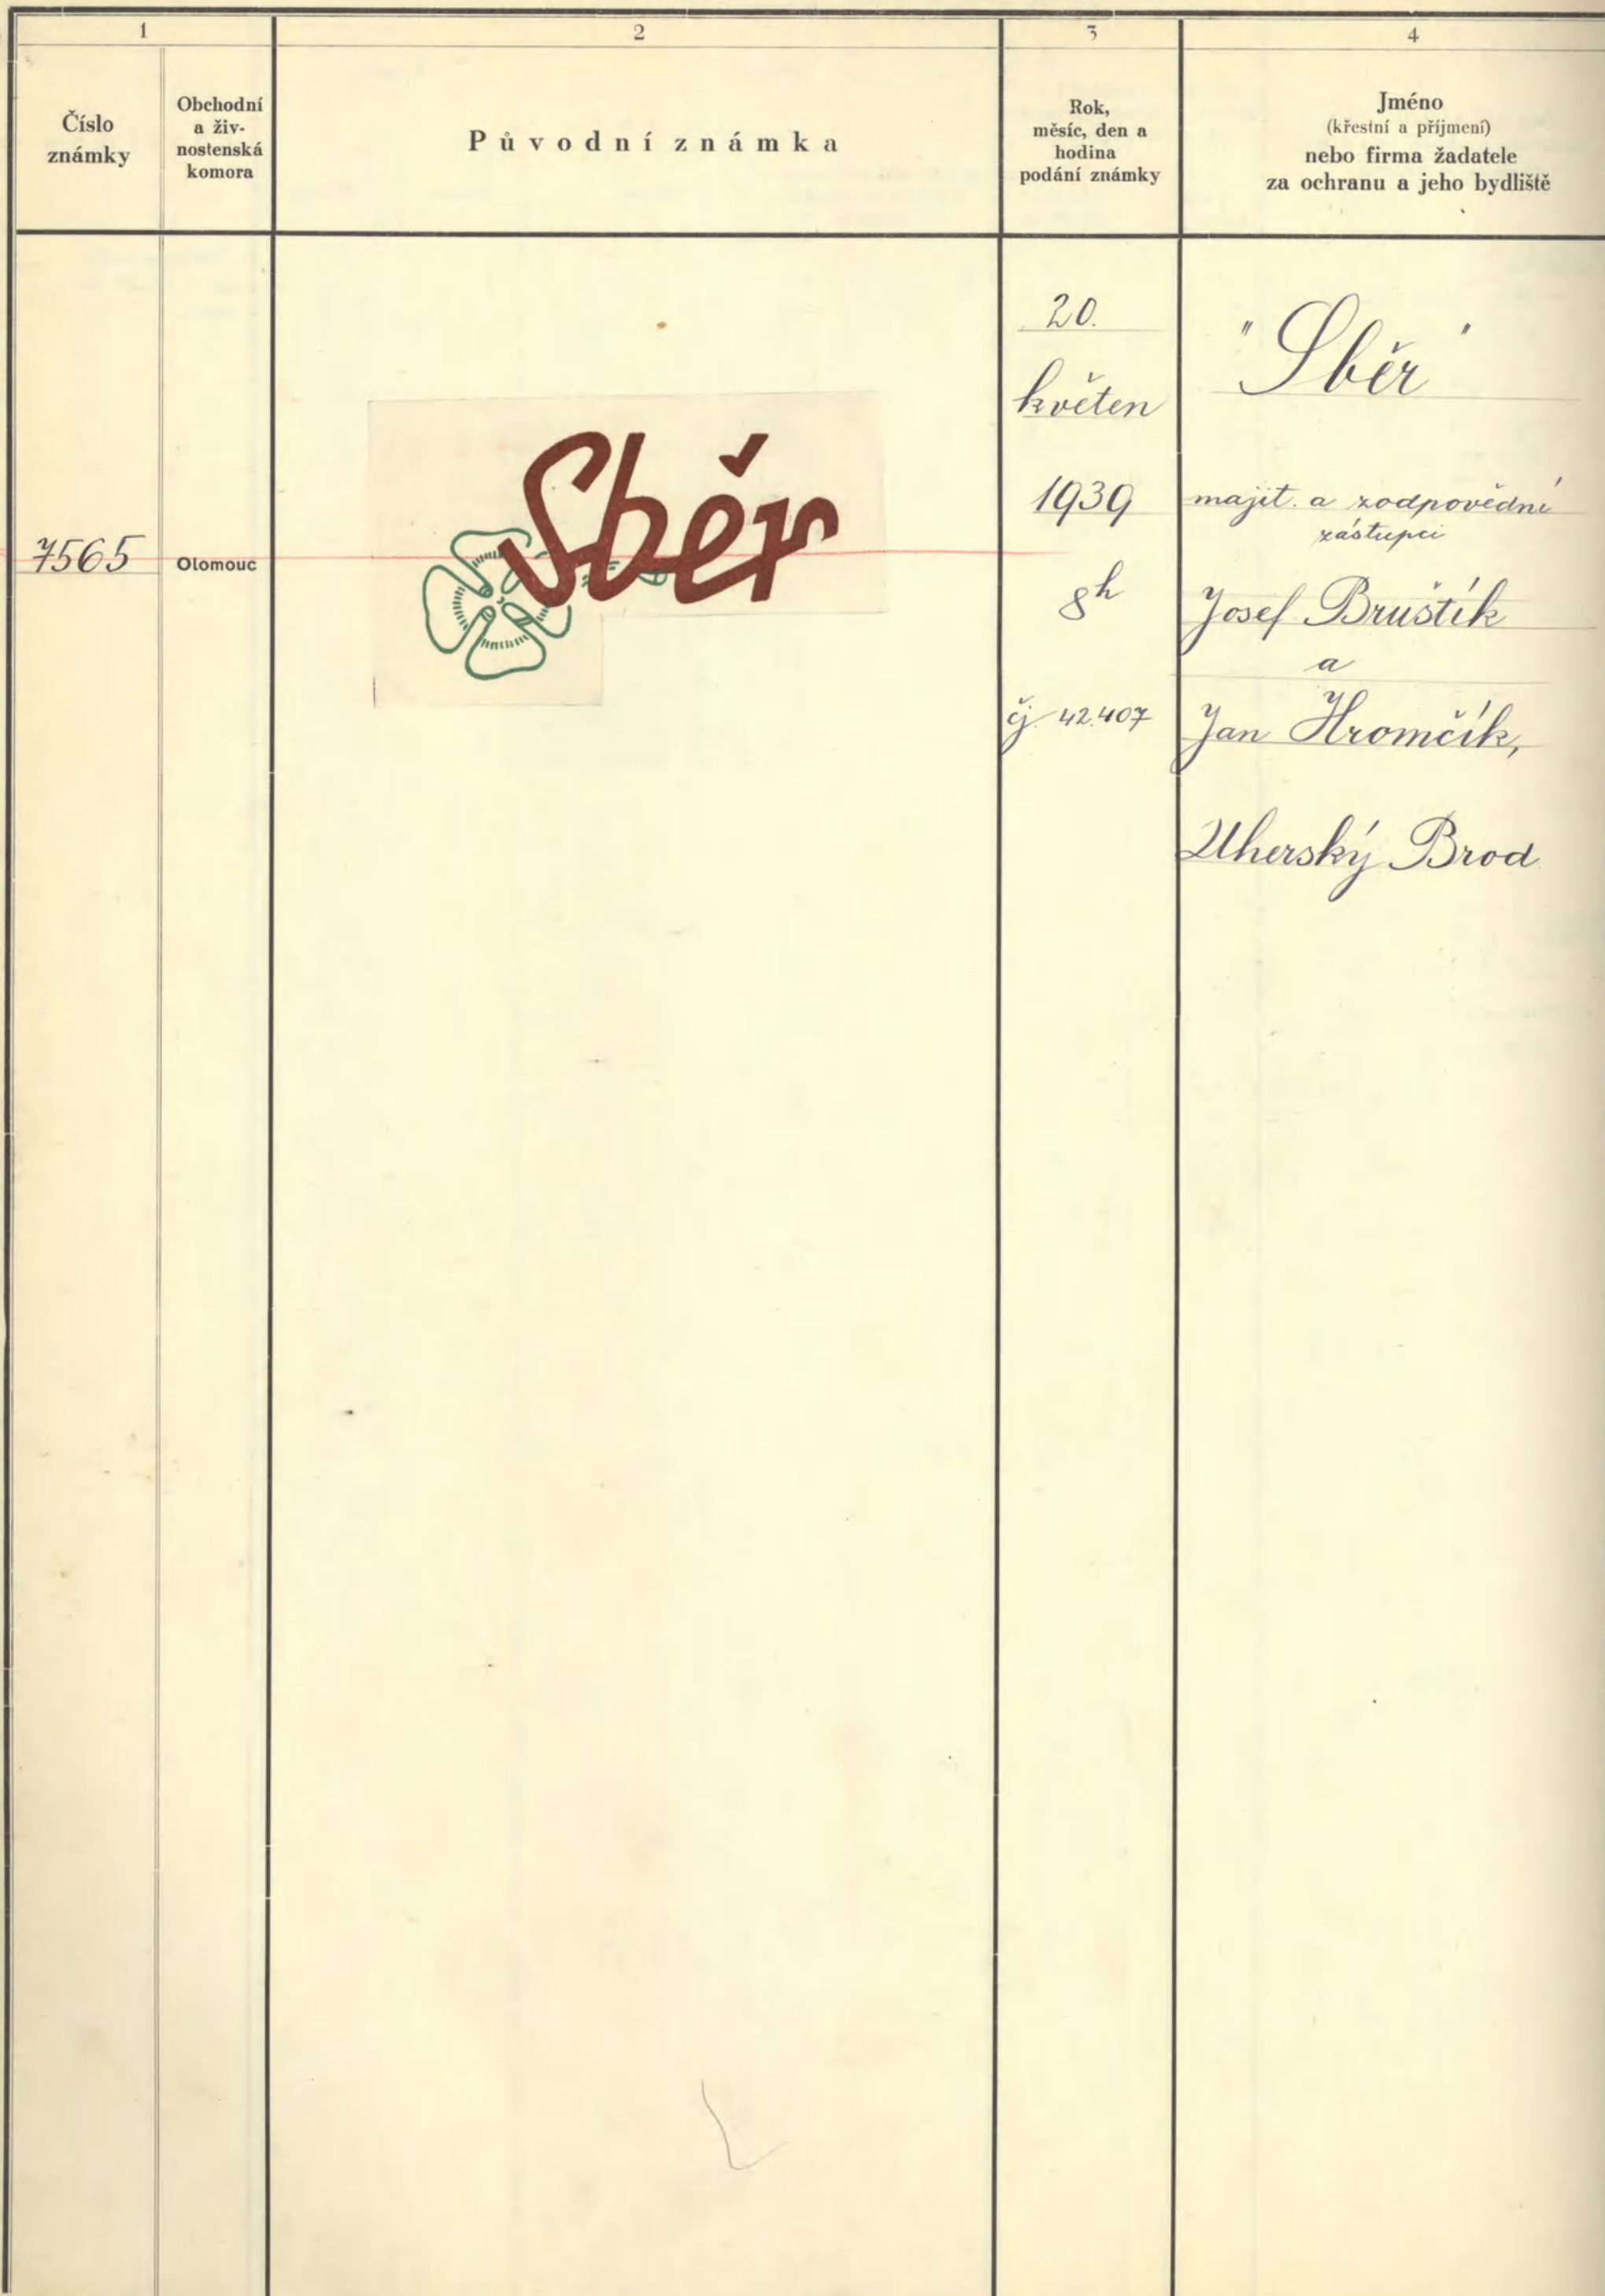 1
2
3
4
Číslo
známky
Obchodní
a živ-
nostenská
komora
Původní známka
Rok,
měsíc, den a
hodina
podání známky
Jméno
(křestní a příjmení)
nebo firma žadatele
za ochranu a jeho bydliště
7565
Olomouc
Sběr
20.
květen
1939
8h
čj. 42.407
"Sběr"
majit. a zodpovědní
zástupci
Josef Bruštík
a
Jan Hromčík,
Uherský Brod